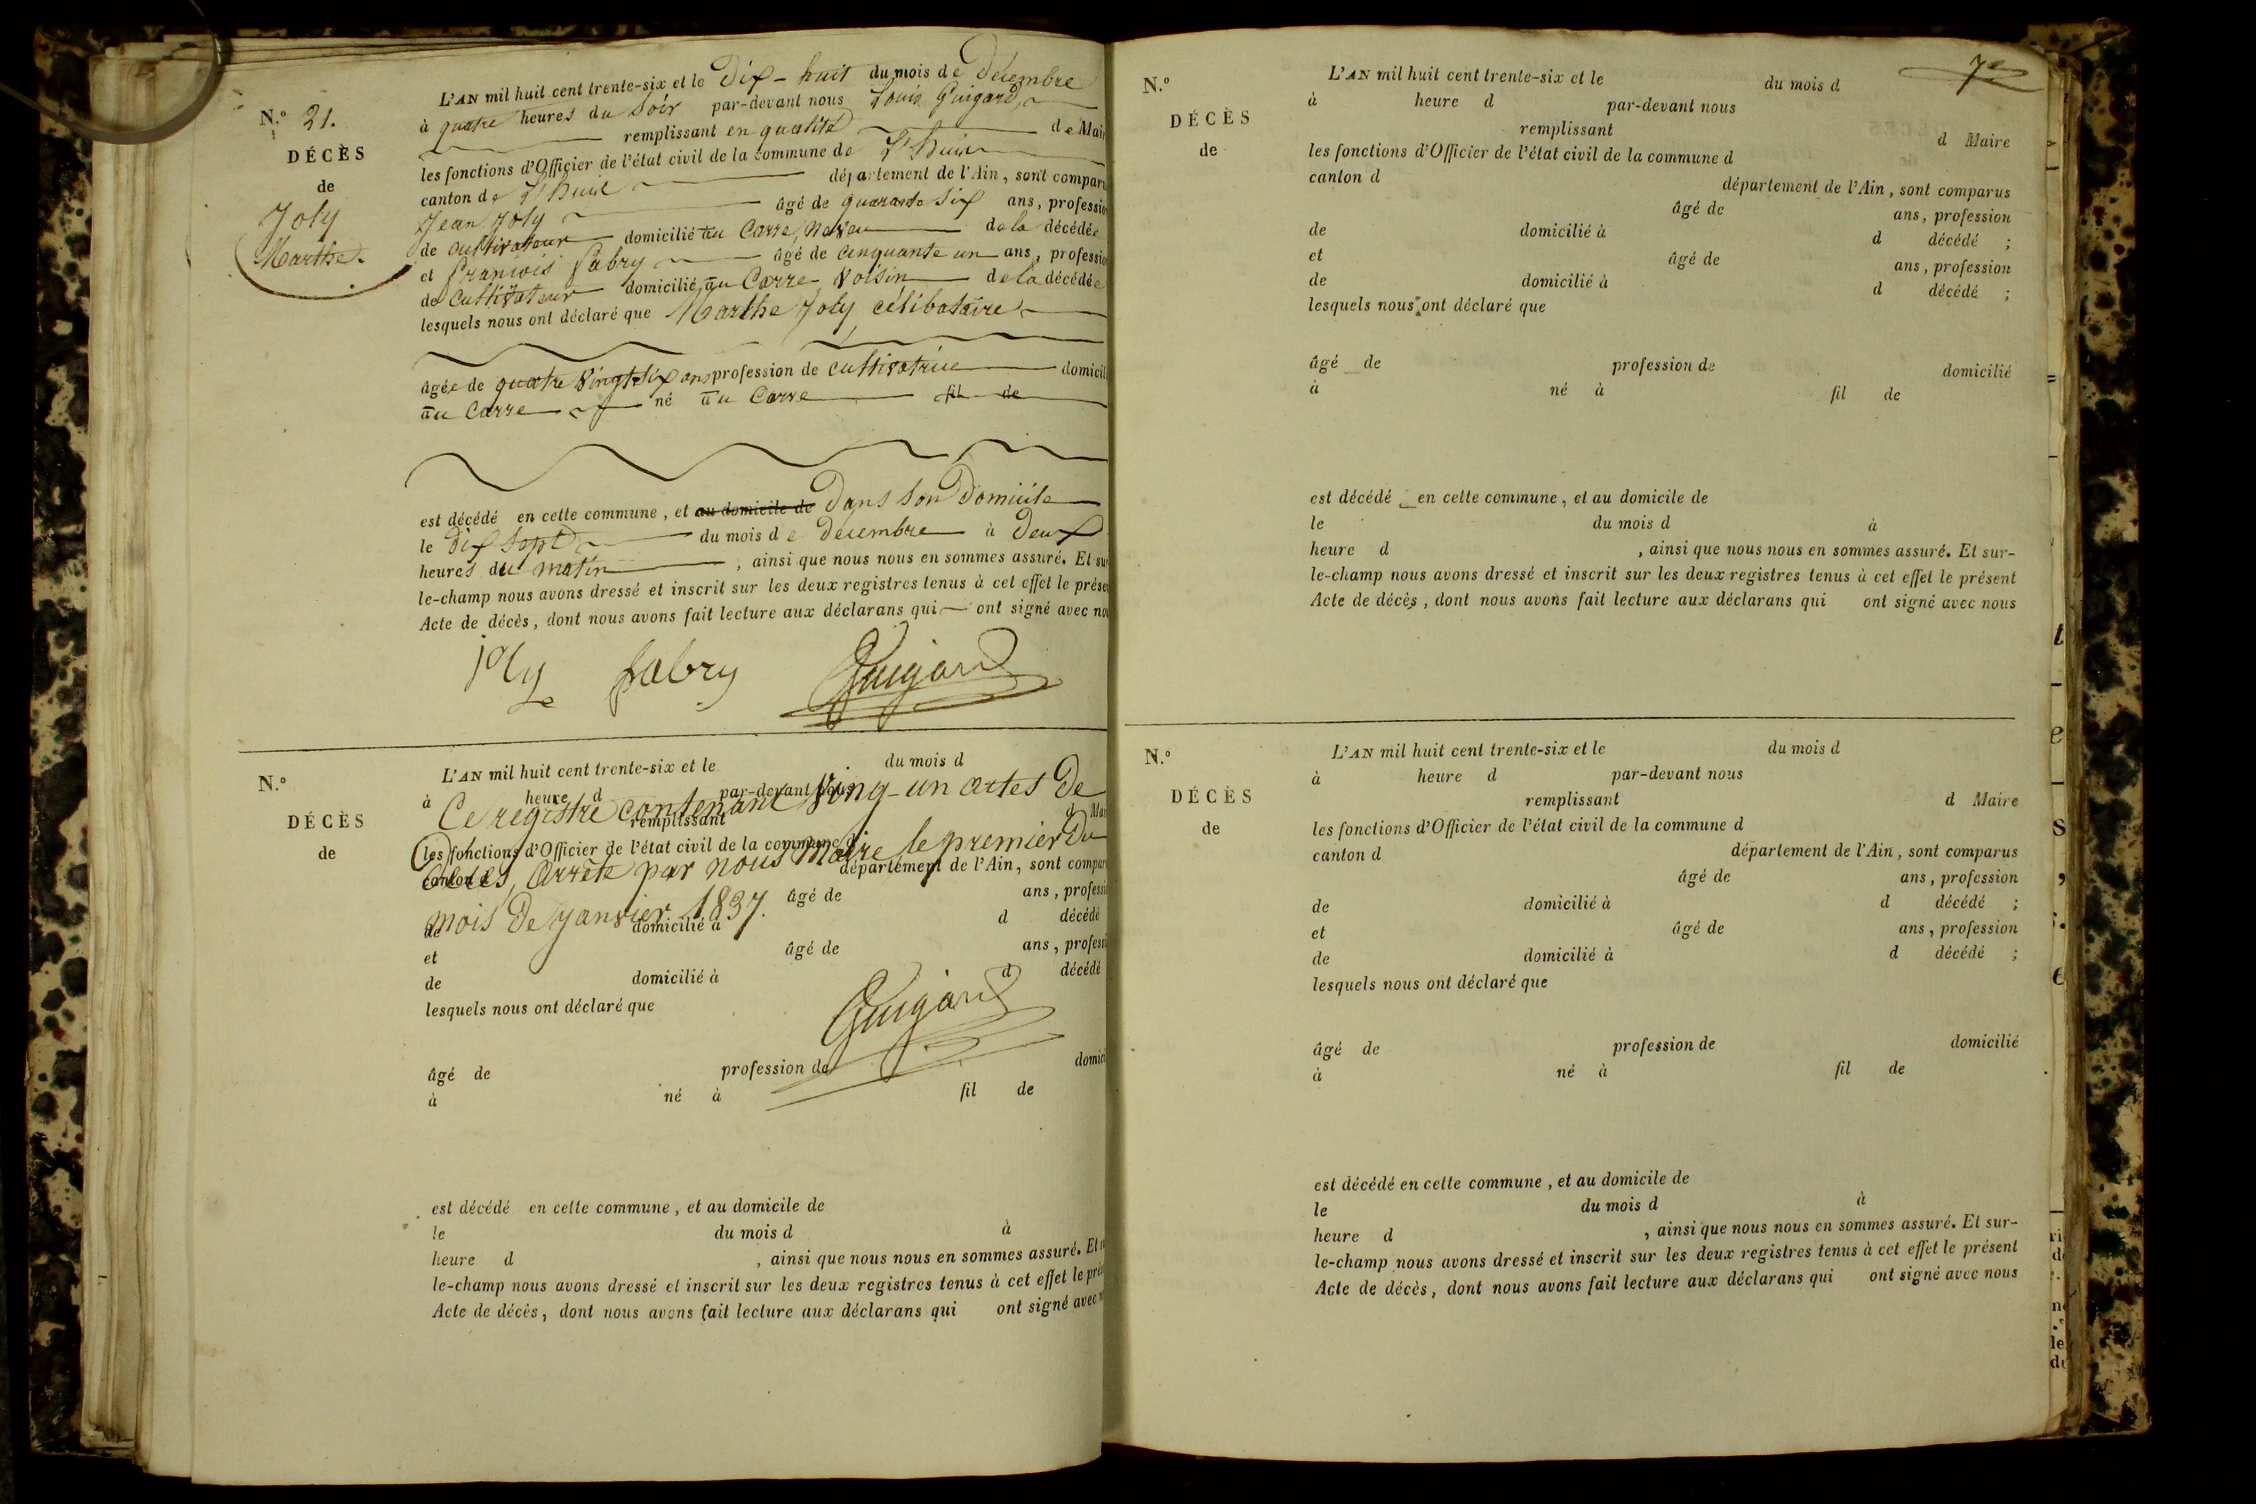 N.º 21.
DÉCÈS
de
Joly
Marthe.
L'AN mil huit cent trente-six et le Dix-huit du mois de Décembre
à quatre heures du Soir par-devant nous Louis Guigard
remplissant en qualité de Mair
les fonctions d'Officier de l'état civil de la commune de L'huis
canton de L'huis département de l'Ain, sont comparu
Jean Joly âgé de quarante six ans, profession
de cultivateur domicilié au Carre, neveu de la décédée
et François Fabry âgé de cinquante un ans, profession
de Cultivateur domicilié au Carre voisin de la décédée
lesquels nous ont déclaré que Marthe Joly célibataire
âgée de quatre vingt six ans profession de cultivatrice domicil
au Carre né au Carre fil de
est décédé en cette commune, et au domicile de Dans son Domicile
le Dix Sept du mois de décembre à Deux
heures du matin, ainsi que nous nous en sommes assuré. Et sur
le-champ nous avons dressé et inscrit sur les deux registres tenus à cet effet le prése
Acte de décès, dont nous avons fait lecture aux déclarans qui ont signé avec nou
joly fabry Guigard
N.º
DÉCÈS
de
L'AN mil huit cent trente-six et le du mois d
à heure d par-devant nous
Ce registre contenant Ving-un actes De
remplissant d Mai
les fonctions d'Officier de l'état civil de la commune d
Décès, Arrêté par nous Maire le premier Du
canton d département de l'Ain, sont compar
âgé de ans, professi
mois De Janvier 1837.
de domicilié à d décédé
et âgé de ans, professi
de domicilié à d décédé
lesquels nous ont déclaré que
Guigard
âgé de profession de domici
à né à fil de
est décédé en cette commune, et au domicile de
le du mois d à
heure d , ainsi que nous nous en sommes assuré. Et
le-champ nous avons dressé et inscrit sur les deux registres tenus à cet effet le pré
Acte de décès, dont nous avons fait lecture aux déclarans qui ont signé avec
7e
N.º
DÉCÈS
de
L'AN mil huit cent trente-six et le du mois d
à heure d par-devant nous
remplissant d Maire
les fonctions d'Officier de l'état civil de la commune d
canton d département de l'Ain, sont comparus
âgé de ans, profession
de domicilié à d décédé ;
et âgé de ans, profession
de domicilié à d décédé ;
lesquels nous ont déclaré que
âgé de profession de domicilié
à né à fil de
est décédé en cette commune, et au domicile de
le du mois d à
heure d , ainsi que nous nous en sommes assuré. Et sur-
le-champ nous avons dressé et inscrit sur les deux registres tenus à cet effet le présent
Acte de décès, dont nous avons fait lecture aux déclarans qui ont signé avec nous
N.º
DÉCÈS
de
L'AN mil huit cent trente-six et le du mois d
à heure d par-devant nous
remplissant d Maire
les fonctions d'Officier de l'état civil de la commune d
canton d département de l'Ain, sont comparus
âgé de ans, profession
de domicilié à d décédé ;
et âgé de ans, profession
de domicilié à d décédé ;
lesquels nous ont déclaré que
âgé de profession de domicilié
à né à fil de
est décédé en cette commune, et au domicile de
le du mois d à
heure d , ainsi que nous nous en sommes assuré. Et sur-
le-champ nous avons dressé et inscrit sur les deux registres tenus à cet effet le présent
Acte de décès, dont nous avons fait lecture aux déclarans qui ont signé avec nous